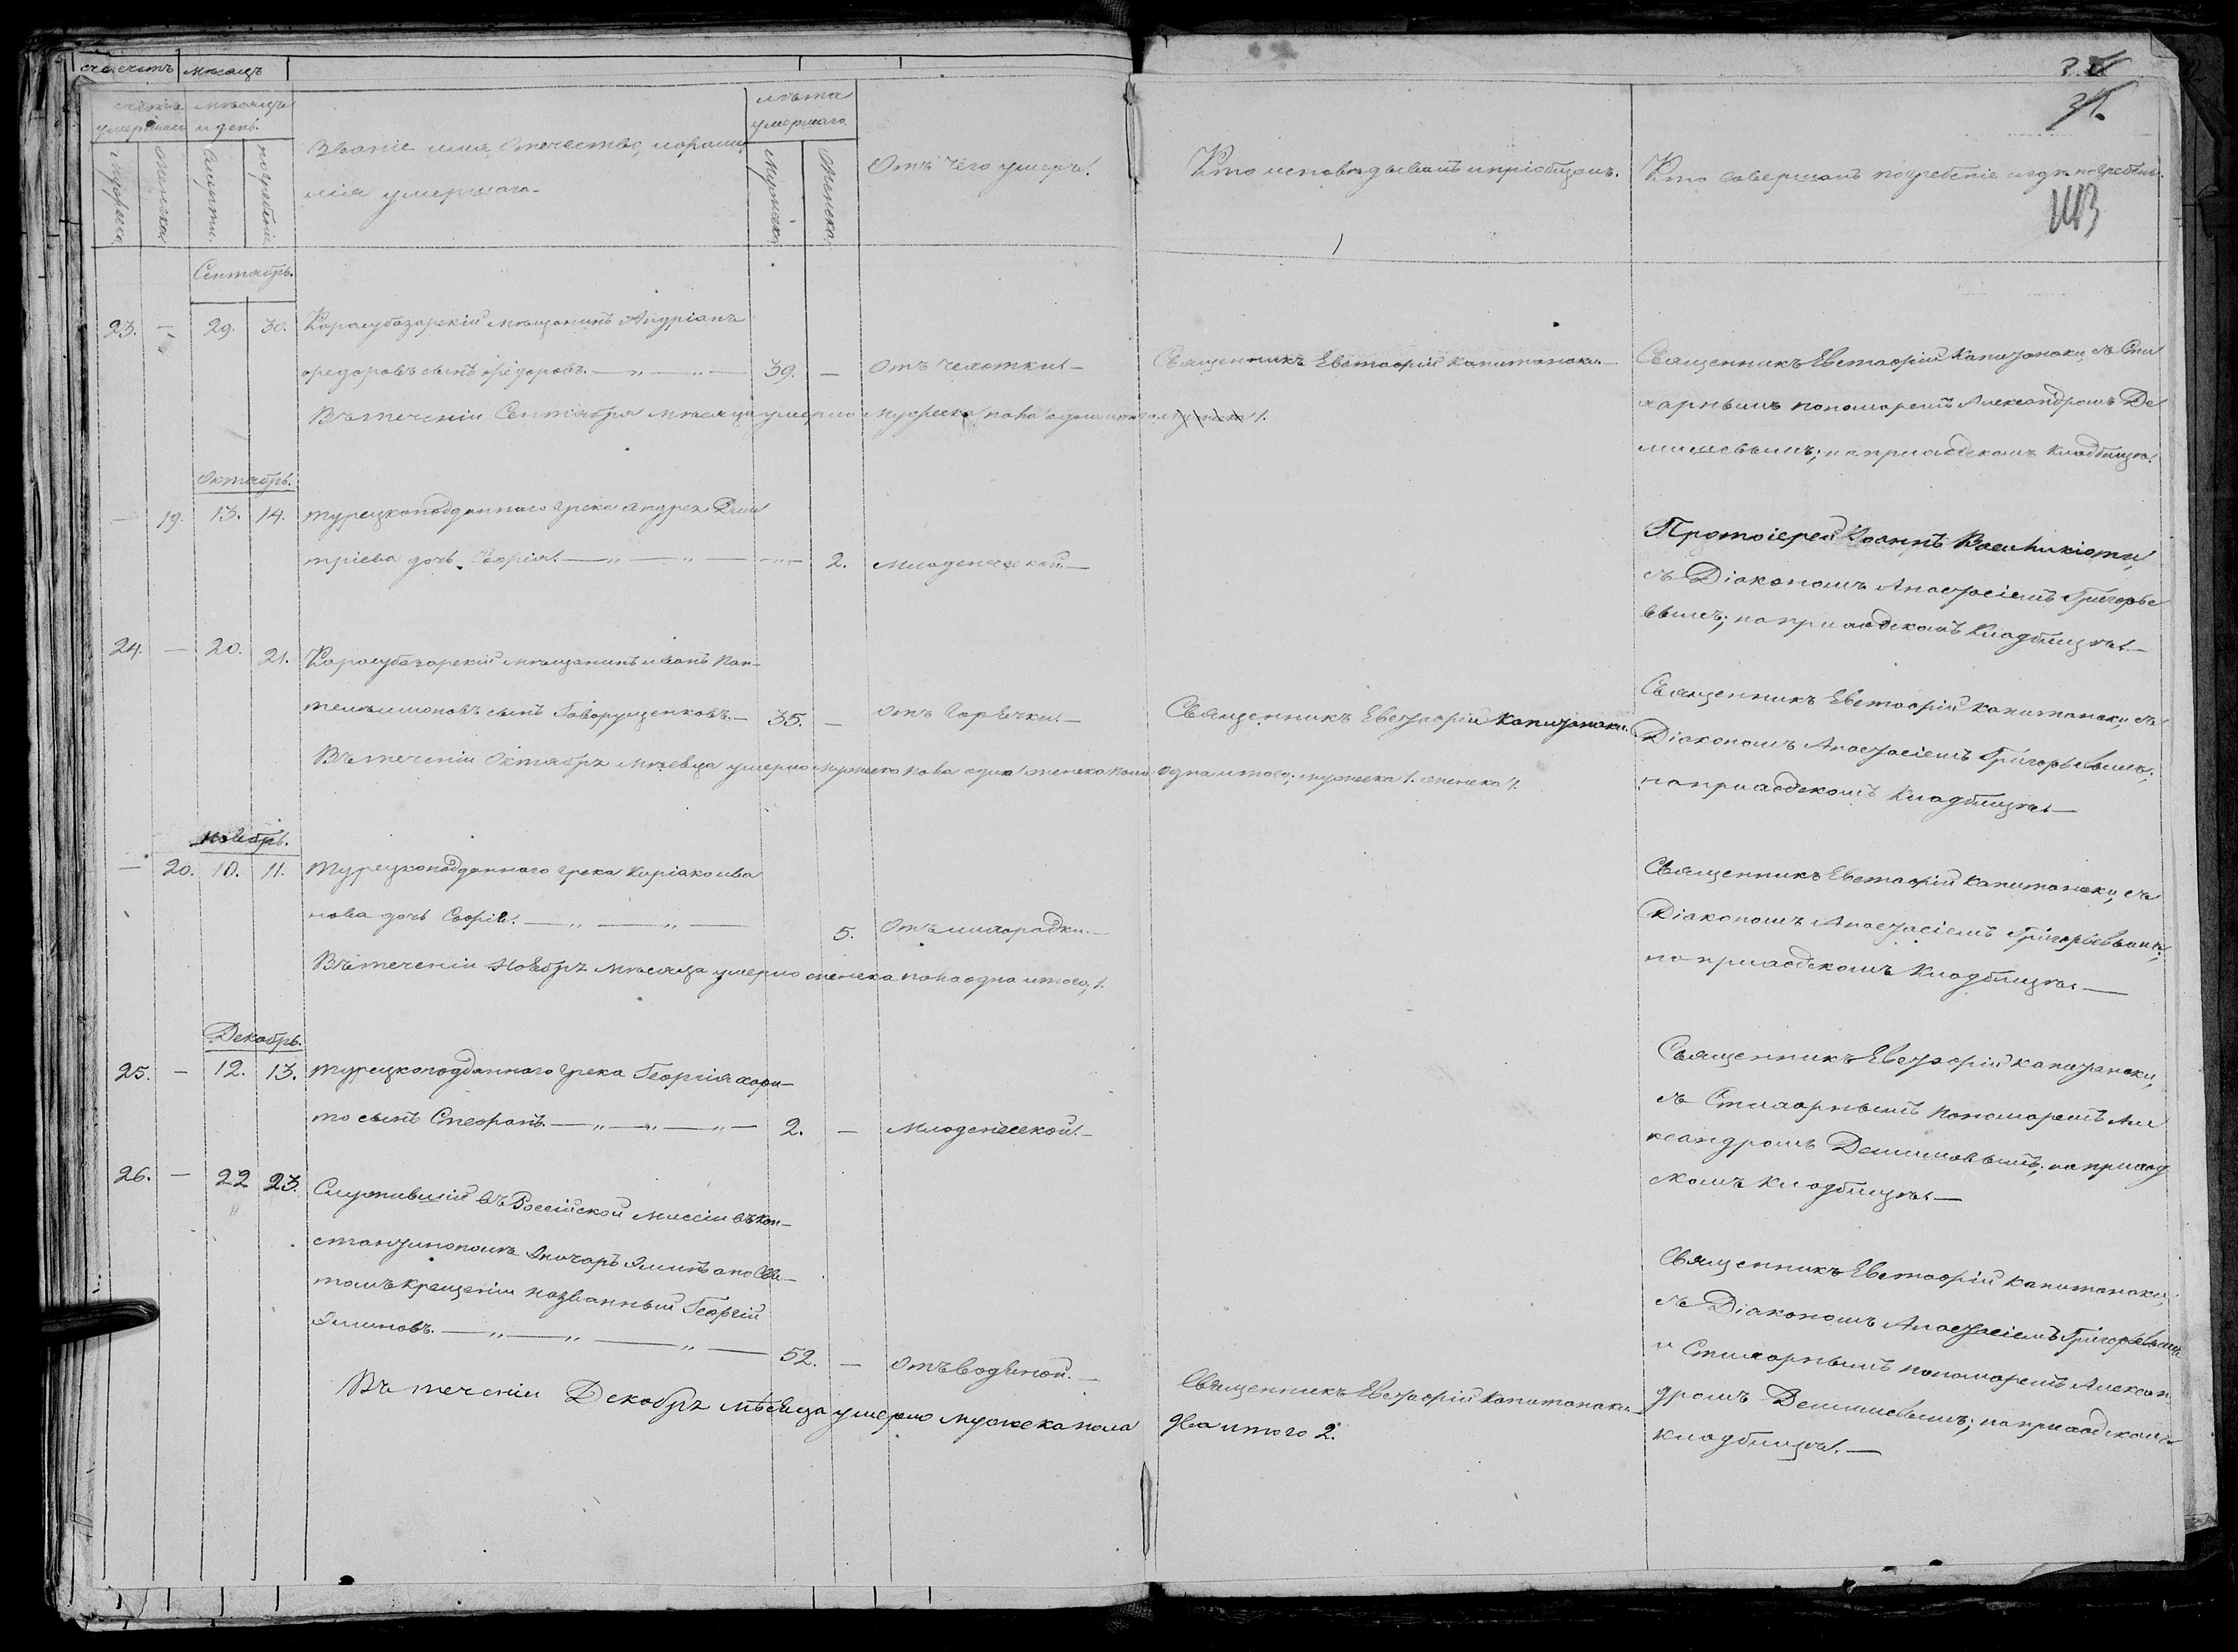 счетъ мѣсяцъ
счетъ умершихъ
мѣсяцъ и день.
Мужеска
Женска
Смерти.
погребенія
Званіе имя, Отечество, и фами
лія умершаго.
лѣта умершаго.
Мужеска
Женска
Отъ чего умеръ.
Кто исповѣдывалъ и пріобщалъ.
Кто совершалъ погребеніе и гдѣ погребены.
31.
Сентябрь.
23. — 29. 30. Карасубазарскій мѣщанинъ Андріанъ
Ѳедоровъ сынъ Ѳедоровъ. — „ — „ — 39. — Отъ чахотки. — Священникъ Евстафій Капитанаки —
Священникъ Евстафій Капитанаки, съ Сти
харнымъ пономаремъ Александромъ Де
мишевымъ; на приходскомъ кладбищѣ.
Въ теченіи Сентября мѣсяца умерло мужеска пола одна итого 1.
Октябрь.
— 19. 13. 14. Турецкоподданнаго грека Андрея Дми
тріева дочь Софія. — „ — „ — „ — 2. Младенческой —
Протоіерей Іоаннъ
съ Діакономъ Анастасіемъ Григорье
вымъ; на приходскомъ кладбищѣ. —
24. — 20. 21. Карасубазарскій мѣщанинъ иванъ Пан-
телимоновъ сынъ Говорущенковъ. — 35. — отъ Горячки. — Священникъ Евстафій Капитанаки.
Священникъ Евстафій Капитанаки, съ
Діакономъ Анастасіемъ Григорьевымъ;
на приходскомъ кладбищѣ. —
Въ теченіи Октябрѣ мѣсяца умерло мужеска пола одна женска пола одна итого; мужеска 1. женска 1.
Ноябрь.
— 20. 10. 11. Турецкоподданнаго грека Киріако ива
нова дочь Софія. — „ — „ — 5. Отъ лихорадки. —
Священникъ Евстафій Капитанаки, съ
Діакономъ Анастасіемъ Григорьевымъ;
на приходскомъ кладбищѣ. —
Въ теченіи Ноябрѣ мѣсяца умерло женска пола одна итого, 1.
Декабрь.
25. — 12. 13. Турецкоподданнаго грека Георгія Хари-
то сынъ Стефанъ — „ — „ — „ — 2. — Младенческой. —
Священникъ Евстафій Капитанаки,
съ Стихарнымъ пономаремъ Але
ксандромъ Демишевымъ; на приход
скомъ кладбищѣ. —
26. — 22 23. Служившій въ Россійской Миссіи въ Кон-
стантинополѣ Эминъ а по Свя-
томъ крещеніи названный Георгій
Эминовъ. — „ — „ — „ — 52. — Отъ водяной. — Священникъ Евстафій Капитанаки —
Священникъ Евстафій Капитанаки,
съ Діакономъ Анастасіемъ Григорьевымъ
и Стихарнымъ пономаремъ Алексан
дромъ Демишевымъ; на приходскомъ
кладбищѣ. —
Въ теченіи Декабрѣ мѣсяца умерло мужеска пола два итого 2.